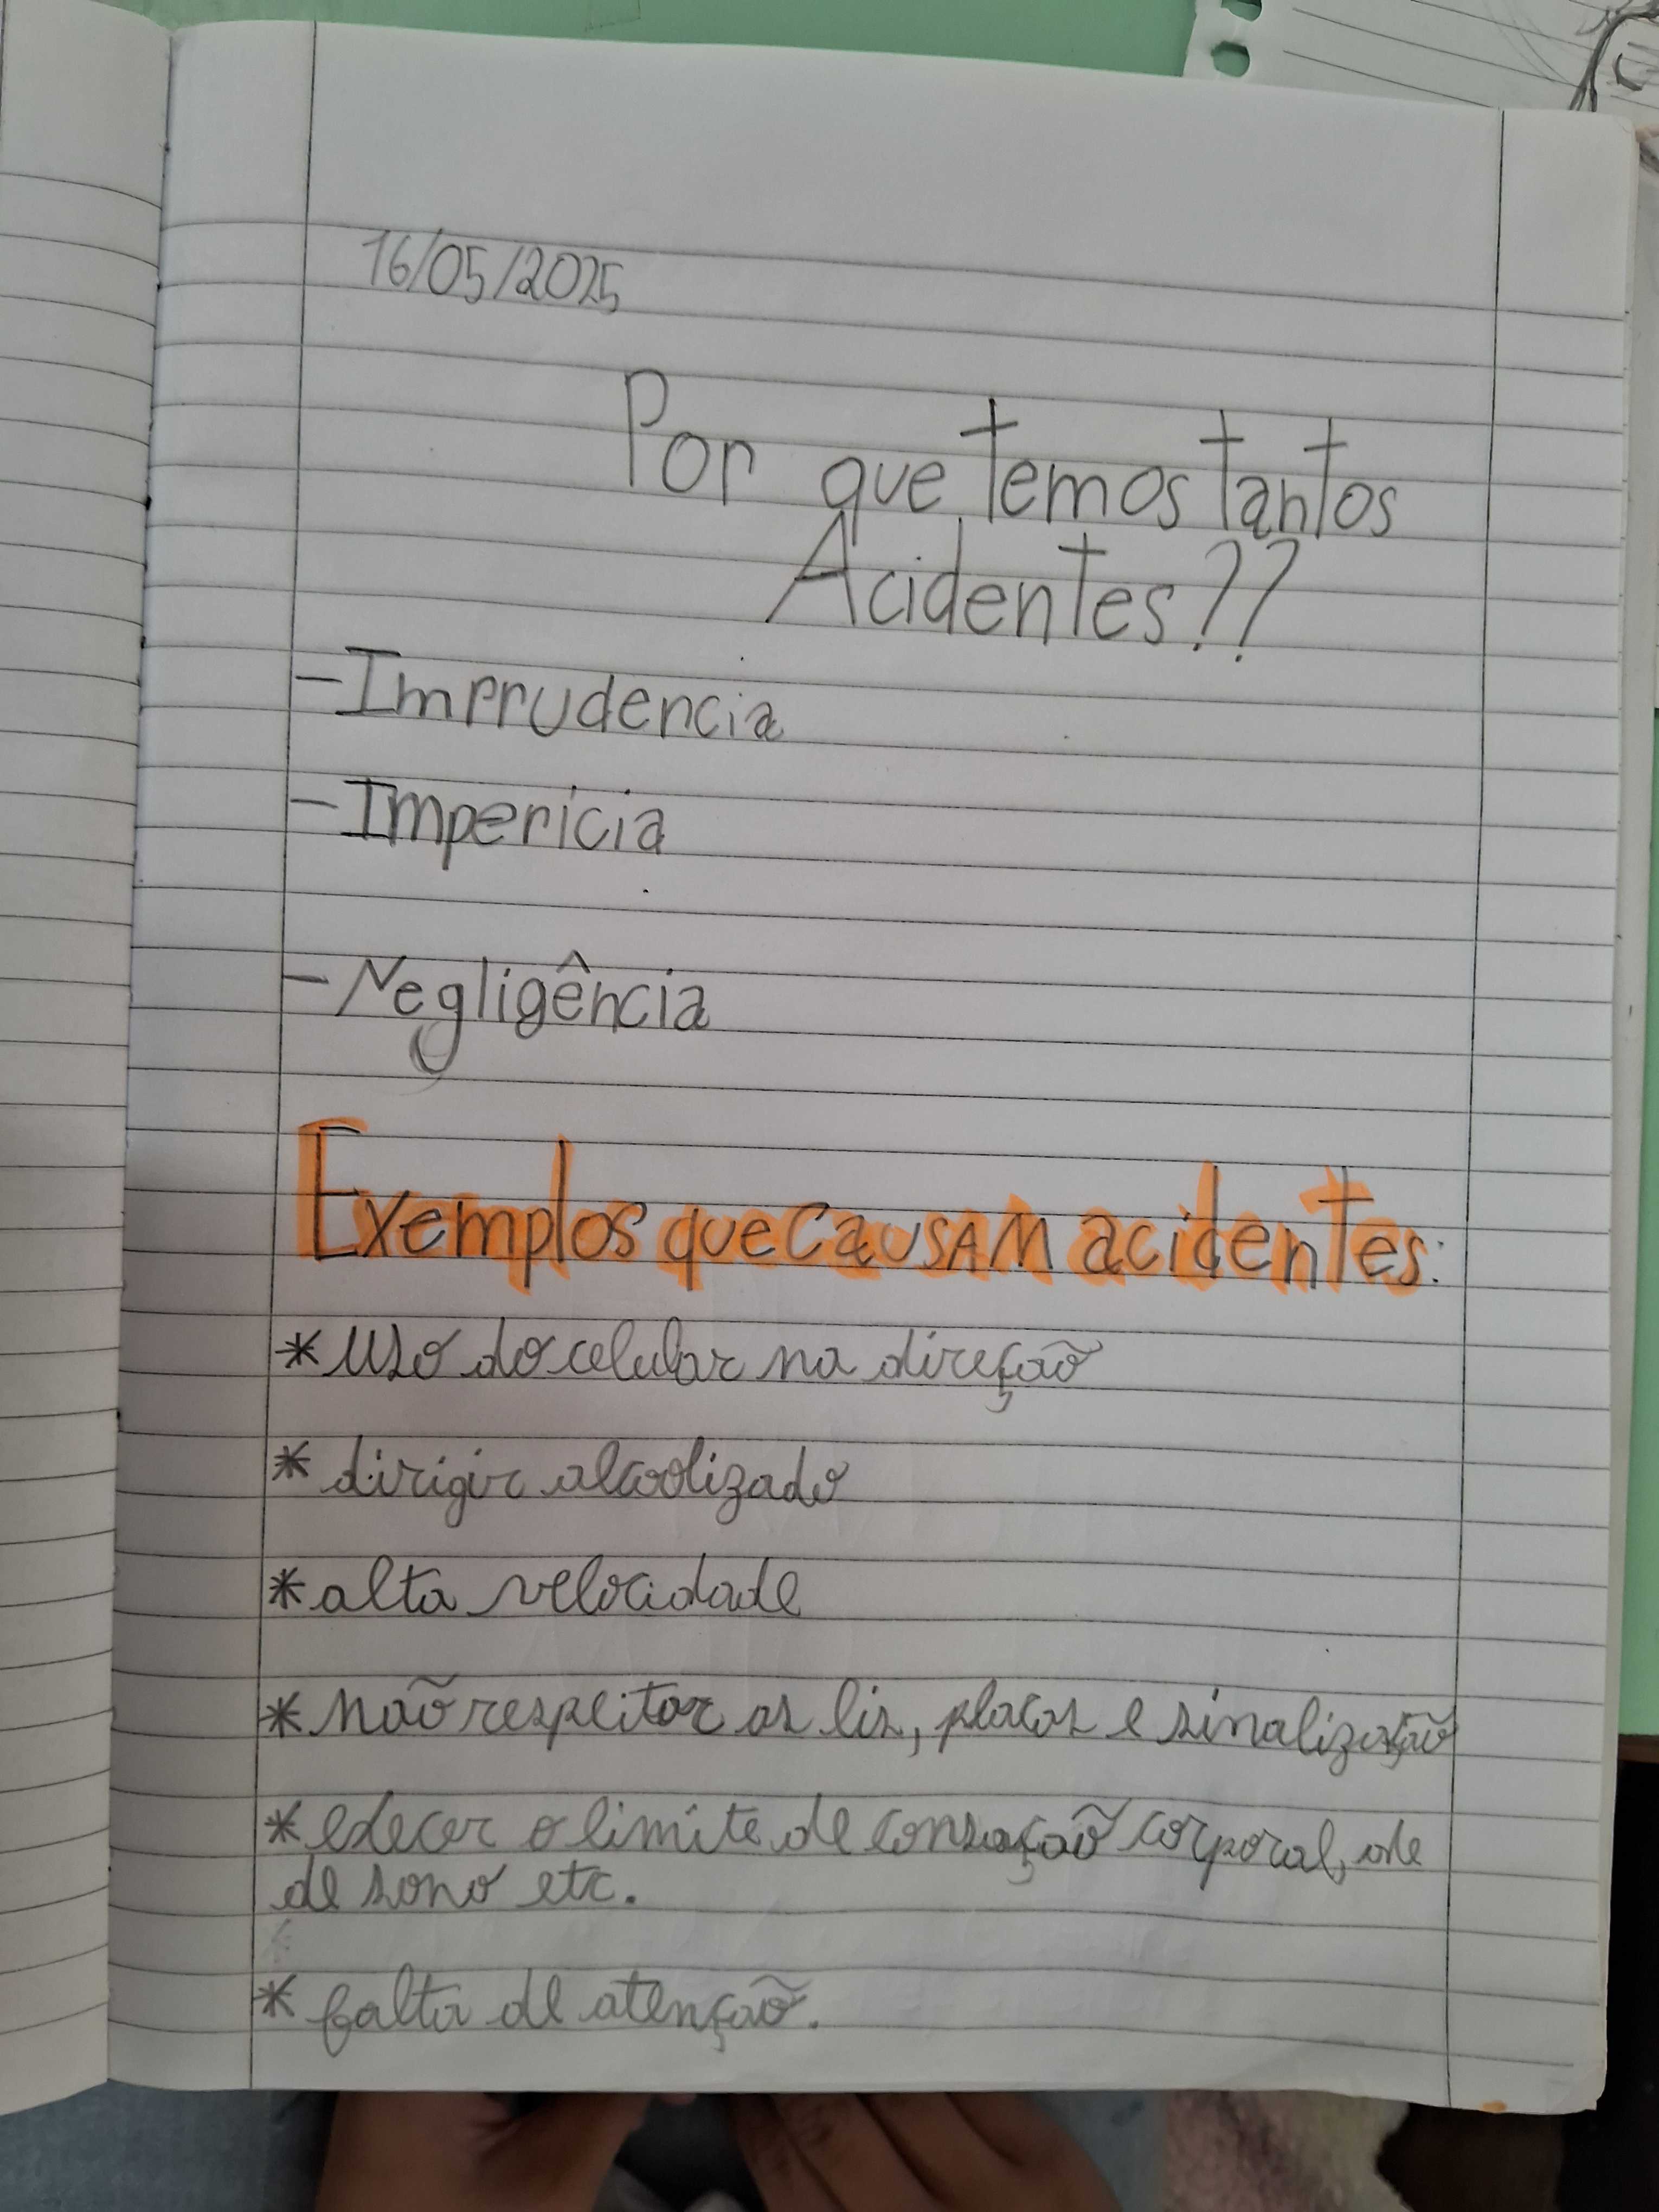 16/05/2025
Por que temos tantos
Acidentes??
-Imprudencia
-Impericia
-Negligência
Exemplos que causam acidentes:
*uso do celular na direção
*dirigir alcoolizado
*alta velocidade
*não respeitar as lis, placas e sinalização
*execer o limite de consação corporal, de
de sono etc.
*falta de atenção.